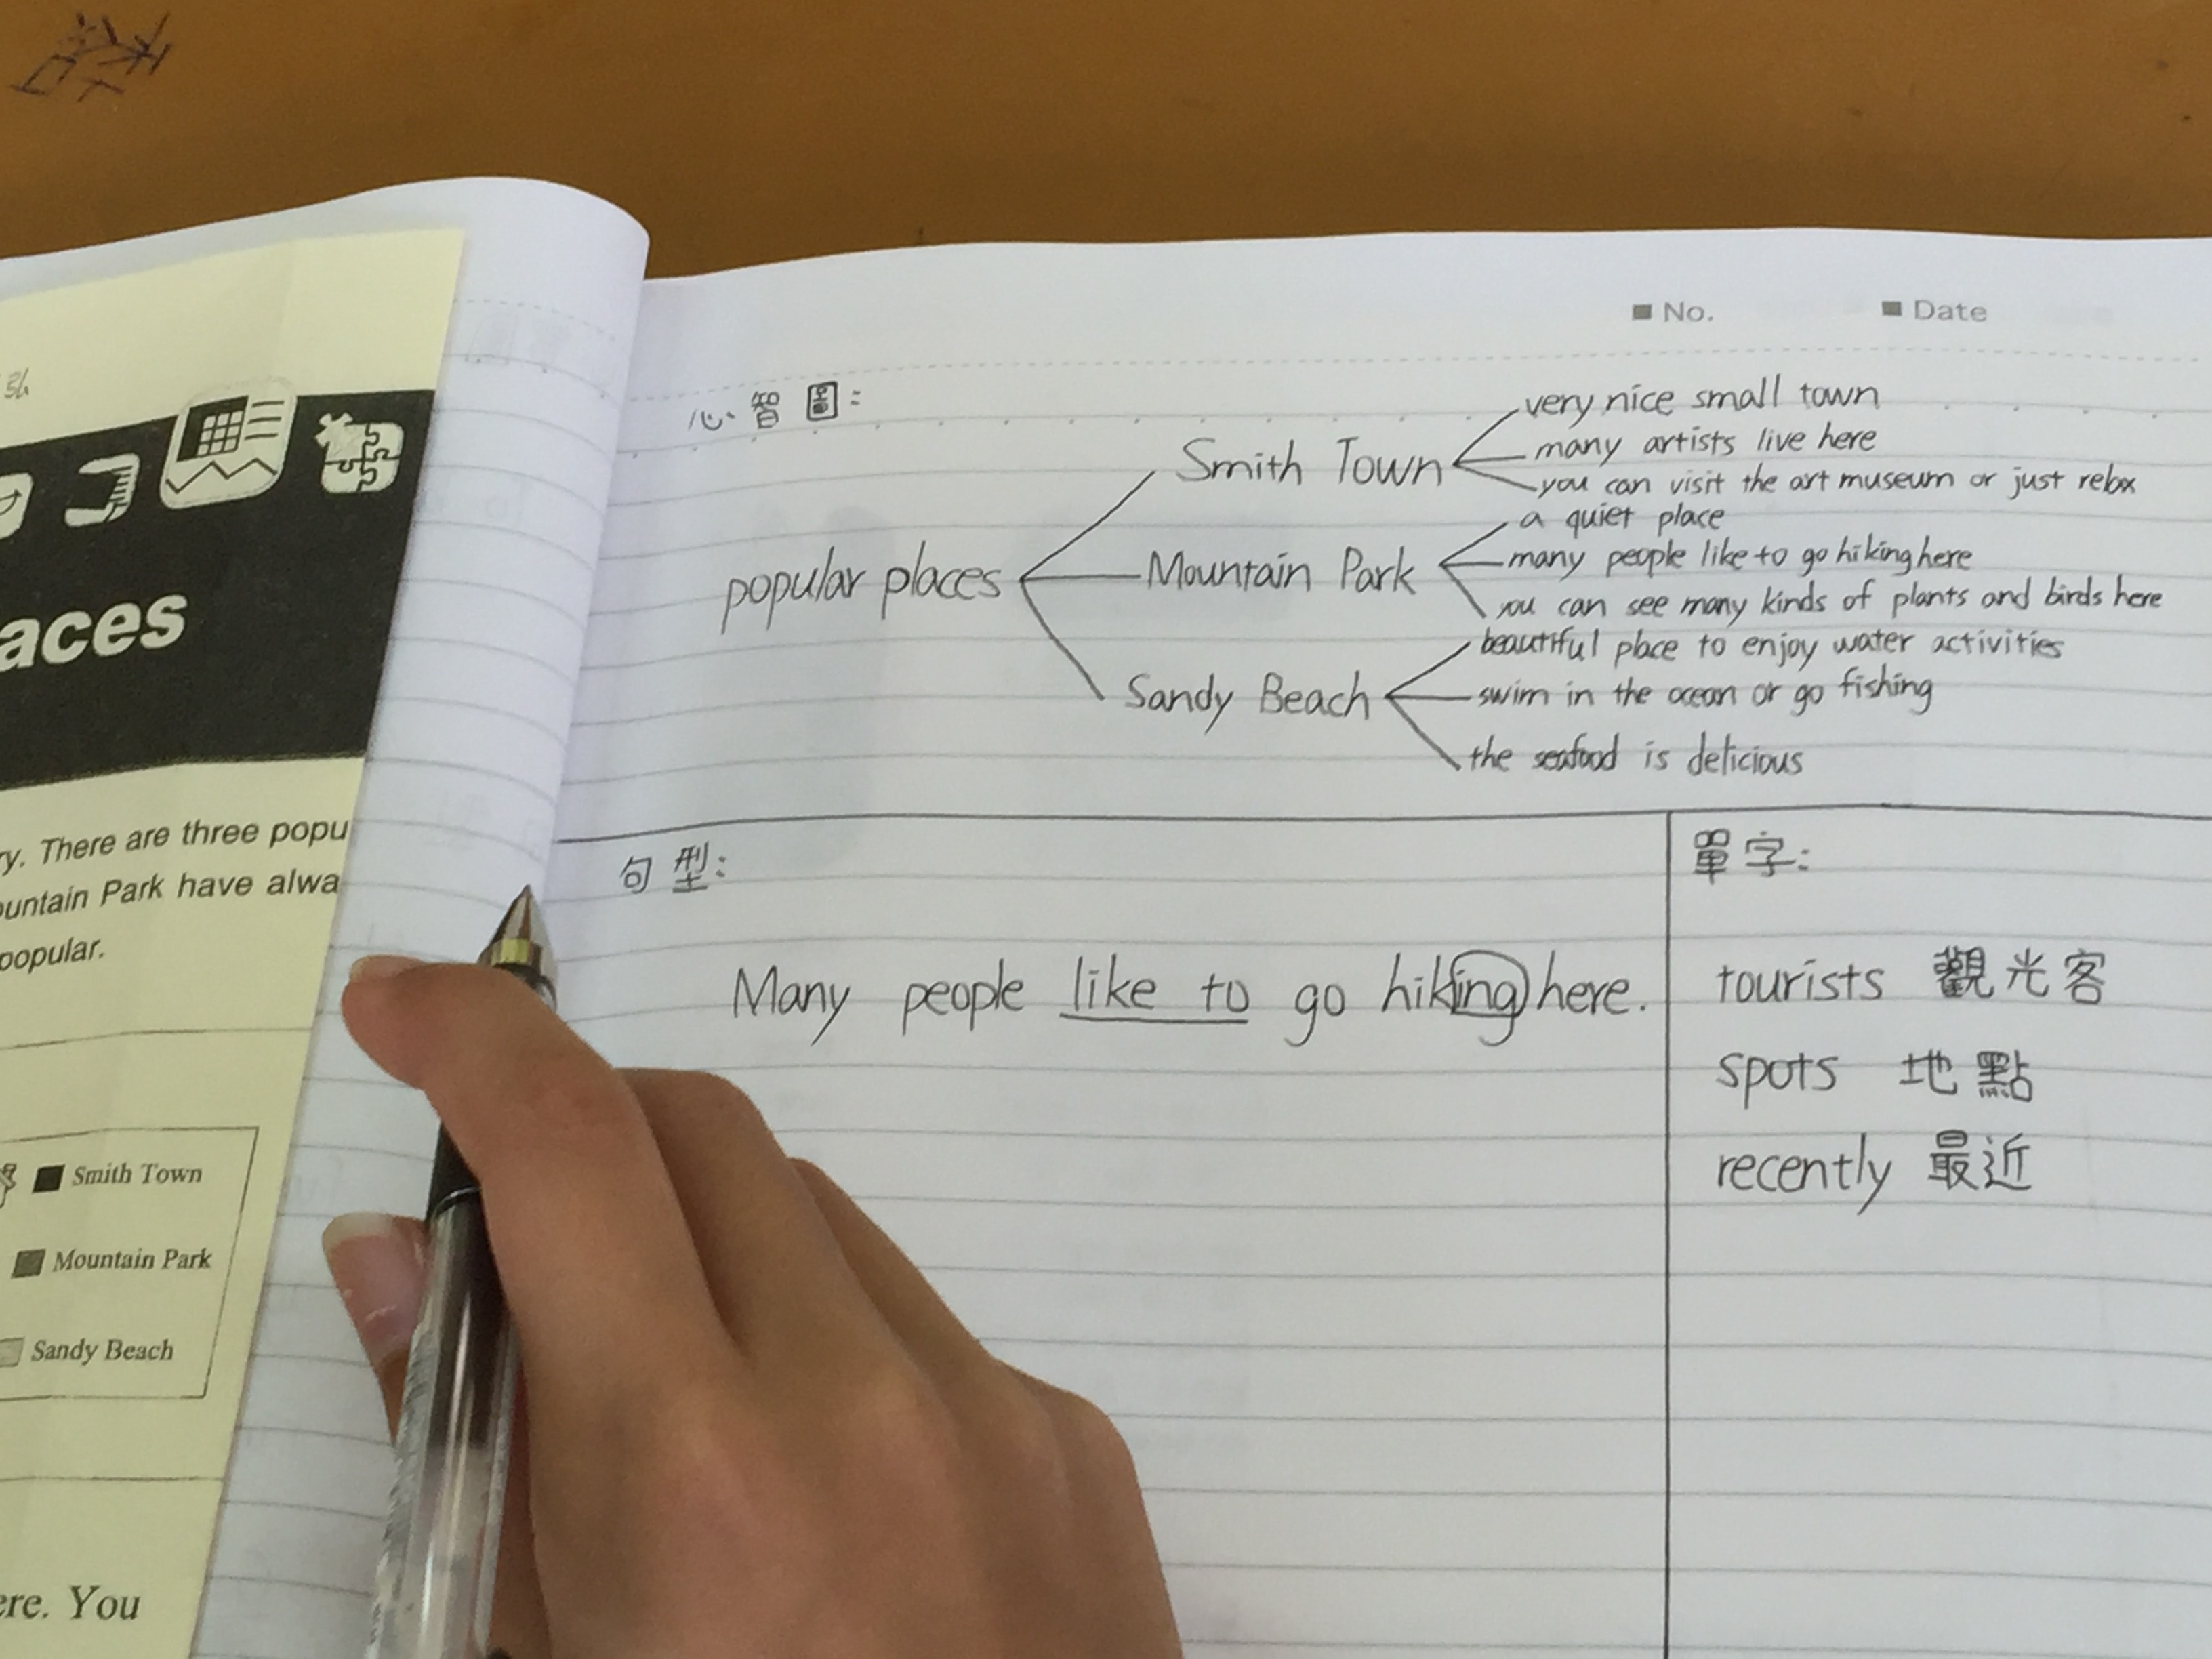 aces
ry. There are three popu
ountain Park have alwa
popular.
Smith Town
Mountain Park
Sandy Beach
ere. You
No. Date
心智圖:
popular places
Smith Town
very nice small town
many artists live here
you can visit the art museum or just relax
Mountain Park
a quiet place
many people like to go hiking here
you can see many kinds of plants and birds here
Sandy Beach
beautiful place to enjoy water activities
swim in the ocean or go fishing
the seafood is delicious
句型:
Many people like to go hiking here.
單字:
tourists 觀光客
spots 地點
recently 最近